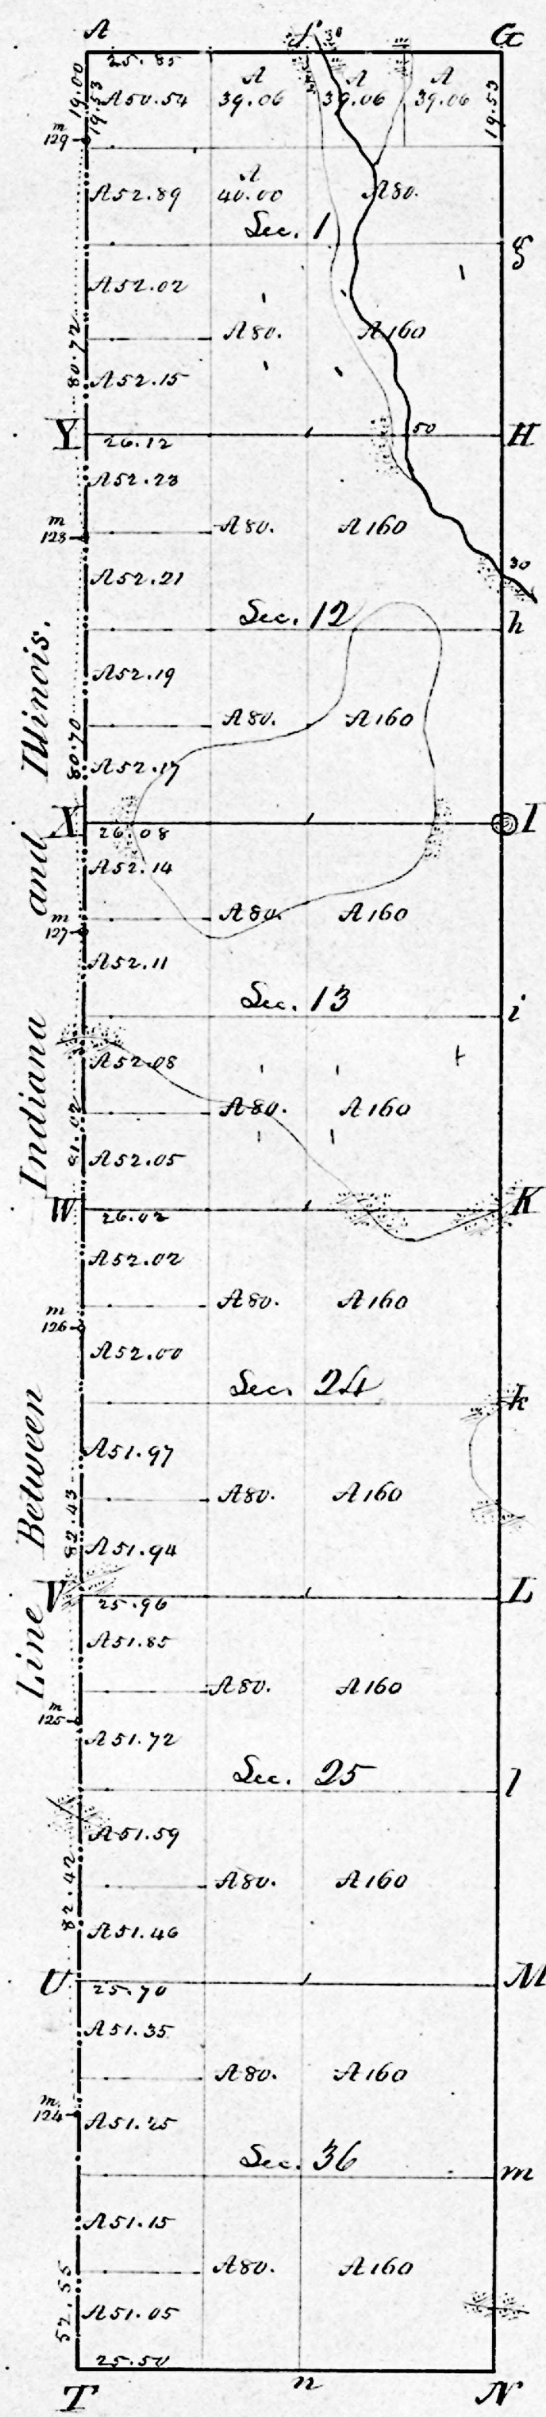 A f 30 G
25.85
19.00
19.53
A50.54
A
39.06
A
39.06
A
39.06
19.53
m
129
A52.89
A
40.00
A80.
Sec. 1
g
A52.02
A80.
A160
80.72
A52.15
Y
26.12
50
H
A52.23
m
128
A80.
A160
A52.21
30
Sec. 12
h
A52.19
A80.
A160
80.70
A52.17
X
26.08
I
A52.14
m
127
A80.
A160
A52.11
Sec. 13
i
A52.08
A80.
A160
81.02
A52.05
W
26.02
K
A52.02
m
126
A80.
A160
A52.00
Sec. 24
k
A51.97
A80.
A160
82.43
A51.94
V
25.96
L
A51.85
m
125
A80.
A160
A51.72
Sec. 25
l
A51.59
A80.
A160
82.42
A51.46
U
25.70
M
A51.35
A80.
A160
m
124
A51.25
Sec. 36
m
A51.15
A80.
A160
52.55
A51.05
25.50
T n N
Line Between Indiana and Illinois.